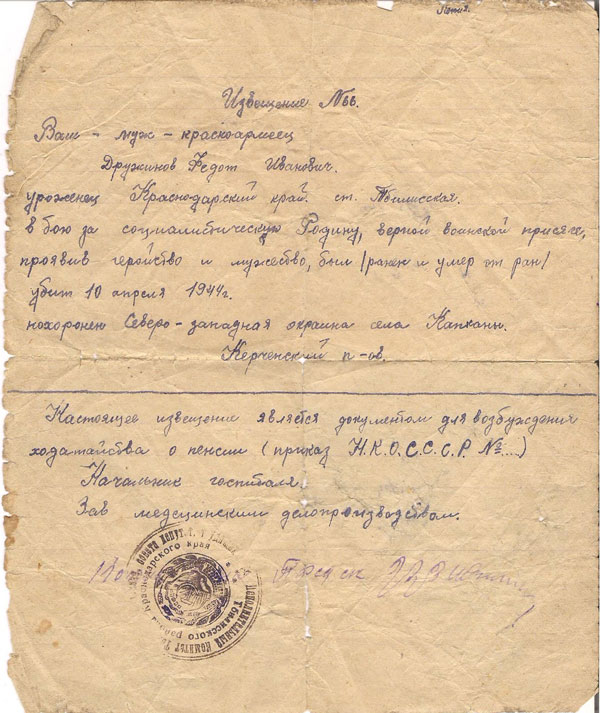 Извещение №66.
Ваш - муж - красноармеец
Дружинов Федот Иванович.
уроженец Краснодарский край. ст. Тбилисская.
в бою за социалистическую Родину, верной воинской присяге,
проявив геройство и мужество, был /ранен и умер от ран/
убит 10 апреля 1944г.
похоронен Северо-западная окраина села Капканы.
Керченский п-ов.
Настоящее извещение является документом для возбуждения
ходатайства о пенсии (приказ Н.К.О.С.С.С.Р. №....)
Начальник госпиталя.
Зав медецинским делопроизводством.
Исполнительный Комитет
Тбилисского района Краснодарского края